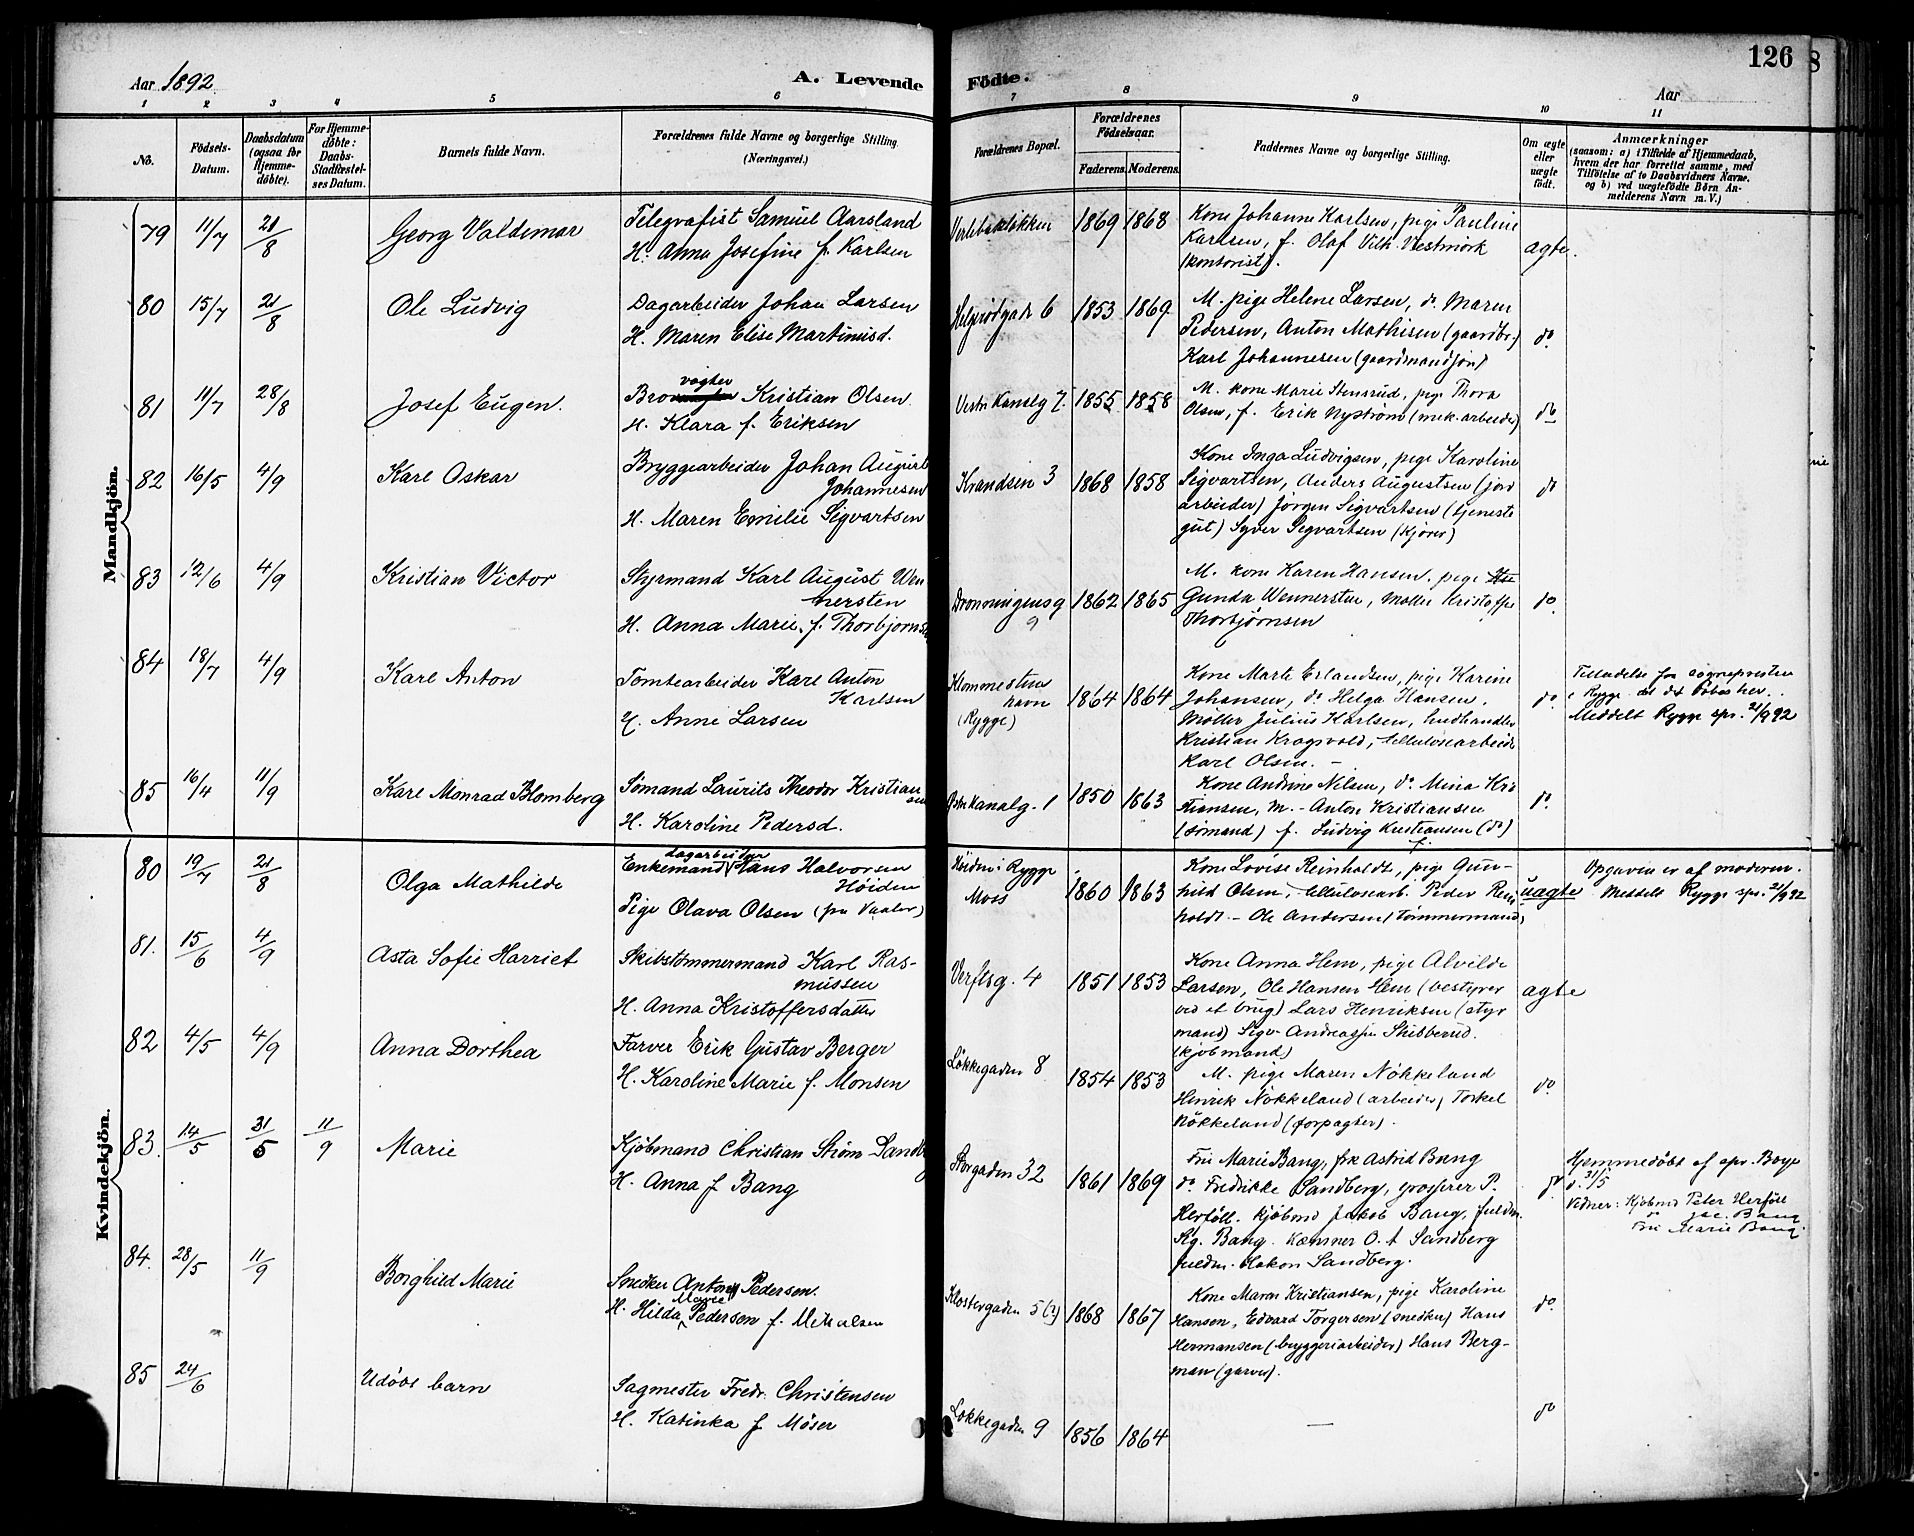 126
8
Aar 1892
A. Levende Födte.
Aar
1 2 3 4 5 6 7 8 9 10 11
No.
Födsels-Datum.
Daabsdatum (ogsaa for Hjemme-døbte).
For Hjemme-døbte: Daabs-Stadfæstel-ses Datum.
Barnets fulde Navn.
Forældrenes fulde Navne og borgerlige Stilling (Næringsvei.)
Forældrenes Bopæl.
Forældrenes Födselsaar.
Faderens. Moderens.
Faddernes Navne og borgerlige Stilling.
Om ægte eller uægte født.
Anmærkninger
(saasom: a) i Tilfælde af Hjemmedaab,
hvem der har forrettet samme, med
Tilföielse af to Daabsvidners Navne.
og b) ved uægtefödte Börn An-
melderens Navn m. V.)
Mandkjön.
79 11/7 21/8 Georg Valdemar
Telegrafist Samuel Aarsland
H. Anna Josefine f. Karlsen
1869 1868
Kone Johanne Karlsen, pige Pauline
Karlsen, f. Olaf Vilh. Vestmörk
(kontorist).
ægte.
80 15/7 21/8 Ole Ludvig
Dagarbeider Johan Larsen
H. Maren Elise Martinusd.
Helgerödgade 6 1853 1869
M. pige Helene Larsen, do Maren
Pedersen, Anton Mathisen (gaardbr.)
Karl Johannesen (gaardmandssøn)
do
81 11/7 28/8 Josef Eugen.
vagter
Bro Kristian Olsen
H. Klara f. Eriksen
Vestre Kanalg 7. 1855 1858
M. kone Marie Stensrud, pige Thora
Olsen, f. Erik Nyström (mek. arbeider)
do
82 16/5 4/9 Karl Oskar
Bryggearbeider Johan August
Johannesen
H. Maren Emilie Sigvartsen
Krandsen 3 1868 1858
Kone Inga Ludvigsen, pige Karoline
Sigvartsen, Anders Augustsen (jord
arbeider) Jörgen Sigvartsen (tjeneste
gut) Syver Sigvartsen (kjörer)
do
83 12/6 4/9 Kristian Victor
Styrmand Karl August Wen
nersten
H. Anna Marie f. Thorbjornsen
Dronningensg 9 1862 1865
M. kone Karen Hansen, pige
Gunda Wennersten, Møller Kristoffer
Thorbjørnsen
do
84 18/7 4/9 Karl Anton
Tomtearbeider Karl Anton
Karlsen
H. Anne Larsen
Klommesten
havn
(Rygge)
1864 1864
Kone Marte Erlandsen, pige Karine
Johansen, do Helga Hansen.
Møller Julius Karlsen, hudhandler
Kristian Kragsvold, cellulosearbeider
Karl Olsen. –
do
Tilladelse fra sognepresten
i Rygge til at døbes her.
Meddelt Rygge spr. 21/9 92
85 16/4 11/9 Karl Monrad Blomberg
Sømand Laurits Theodor Kristian
sen
H. Karoline Pedersd.
Østre Kanalg. 1 1850 1863
Kone Andrine Nilsen, do Mina Kri
stiansen, M. – Anton Kristiansen
(sømand) f. Ludvig Kristiansen (do)
do
Kvindekjön.
80 19/7 21/8 Olga Mathilde
dagarbeider
Enkemand Hans Halvorsen
Höiden
Pige Olava Olsen (fra Vaaler)
Höiden i Rygge
Moss
1860 1863
Kone Lovise Reinholdt, pige Gun-
hild Olsen, cellulosearb. Peder Rein
holdt – Ole Andersen (tømmermand)
uægte
Opgaven er af moderen.
Meddelt Rygge spr. 21/9 92
81. 15/6 4/9 Asta Sofie Harriet
Skibstømmermand Karl Ras-
mussen
H. Anna Kristoffersdatter
Verftsg. 4 1851 1853
Kone Anna Hem, pige Alvilde
Larsen, Ole Hansen Hem (bestyrer
ved et brug) Lars Henriksen (styr
mand) Sigv. Andreas Skibberud.
(kjøbmand)
ægte
82 4/5 4/9 Anna Dorthea
Farver Erik Gustav Berger
H. Karoline Marie f. Monsen
Løkkegaden 8 1854 1853
M. pige Maren Nökkeland
Hinrik Nökkeland (arbeider) Torkel
Nökkeland (forpagter).
do
83. 14/5 31/5 11/9 Marie
Kjöbmand Christian Strøm Sandberg
H. Anna f Bang
Storgaden 32 1861 1869
Fru Marie Bang, frk Astrid Bang
do Fredrikke Sandberg, grosserer P.
Herföll. kjöbmd Jakob Bang, fuldm.
Kg. Bang. Kæmner O. A Sandberg
fuldm. Hakon Sandberg.
do
Hjemmedöbt af spr. Boye
d. 31/5
Vidner: Kjöbmd Peter Herföll
do Jac. Bang
Fru Marie Bang.
84. 28/5 11/9 Borghild Marie
Snedker Anton Pedersen.
Marie
H. Hilda Pedersen f. Mikalsen
Klostergaden 5 (?) 1868 1867
Kone Maren Kristiansen, pige Karoline
Hansen, Edvard Torgersen (snedker) Hans
Hermansen (bryggeriarbeider) Hans Berg-
man (garver).
do
85 24/6 Udöbt barn
Sagmester Fredr. Christensen
H. Katinka f Möser
Løkkegaden 9 1856 1864
—
do